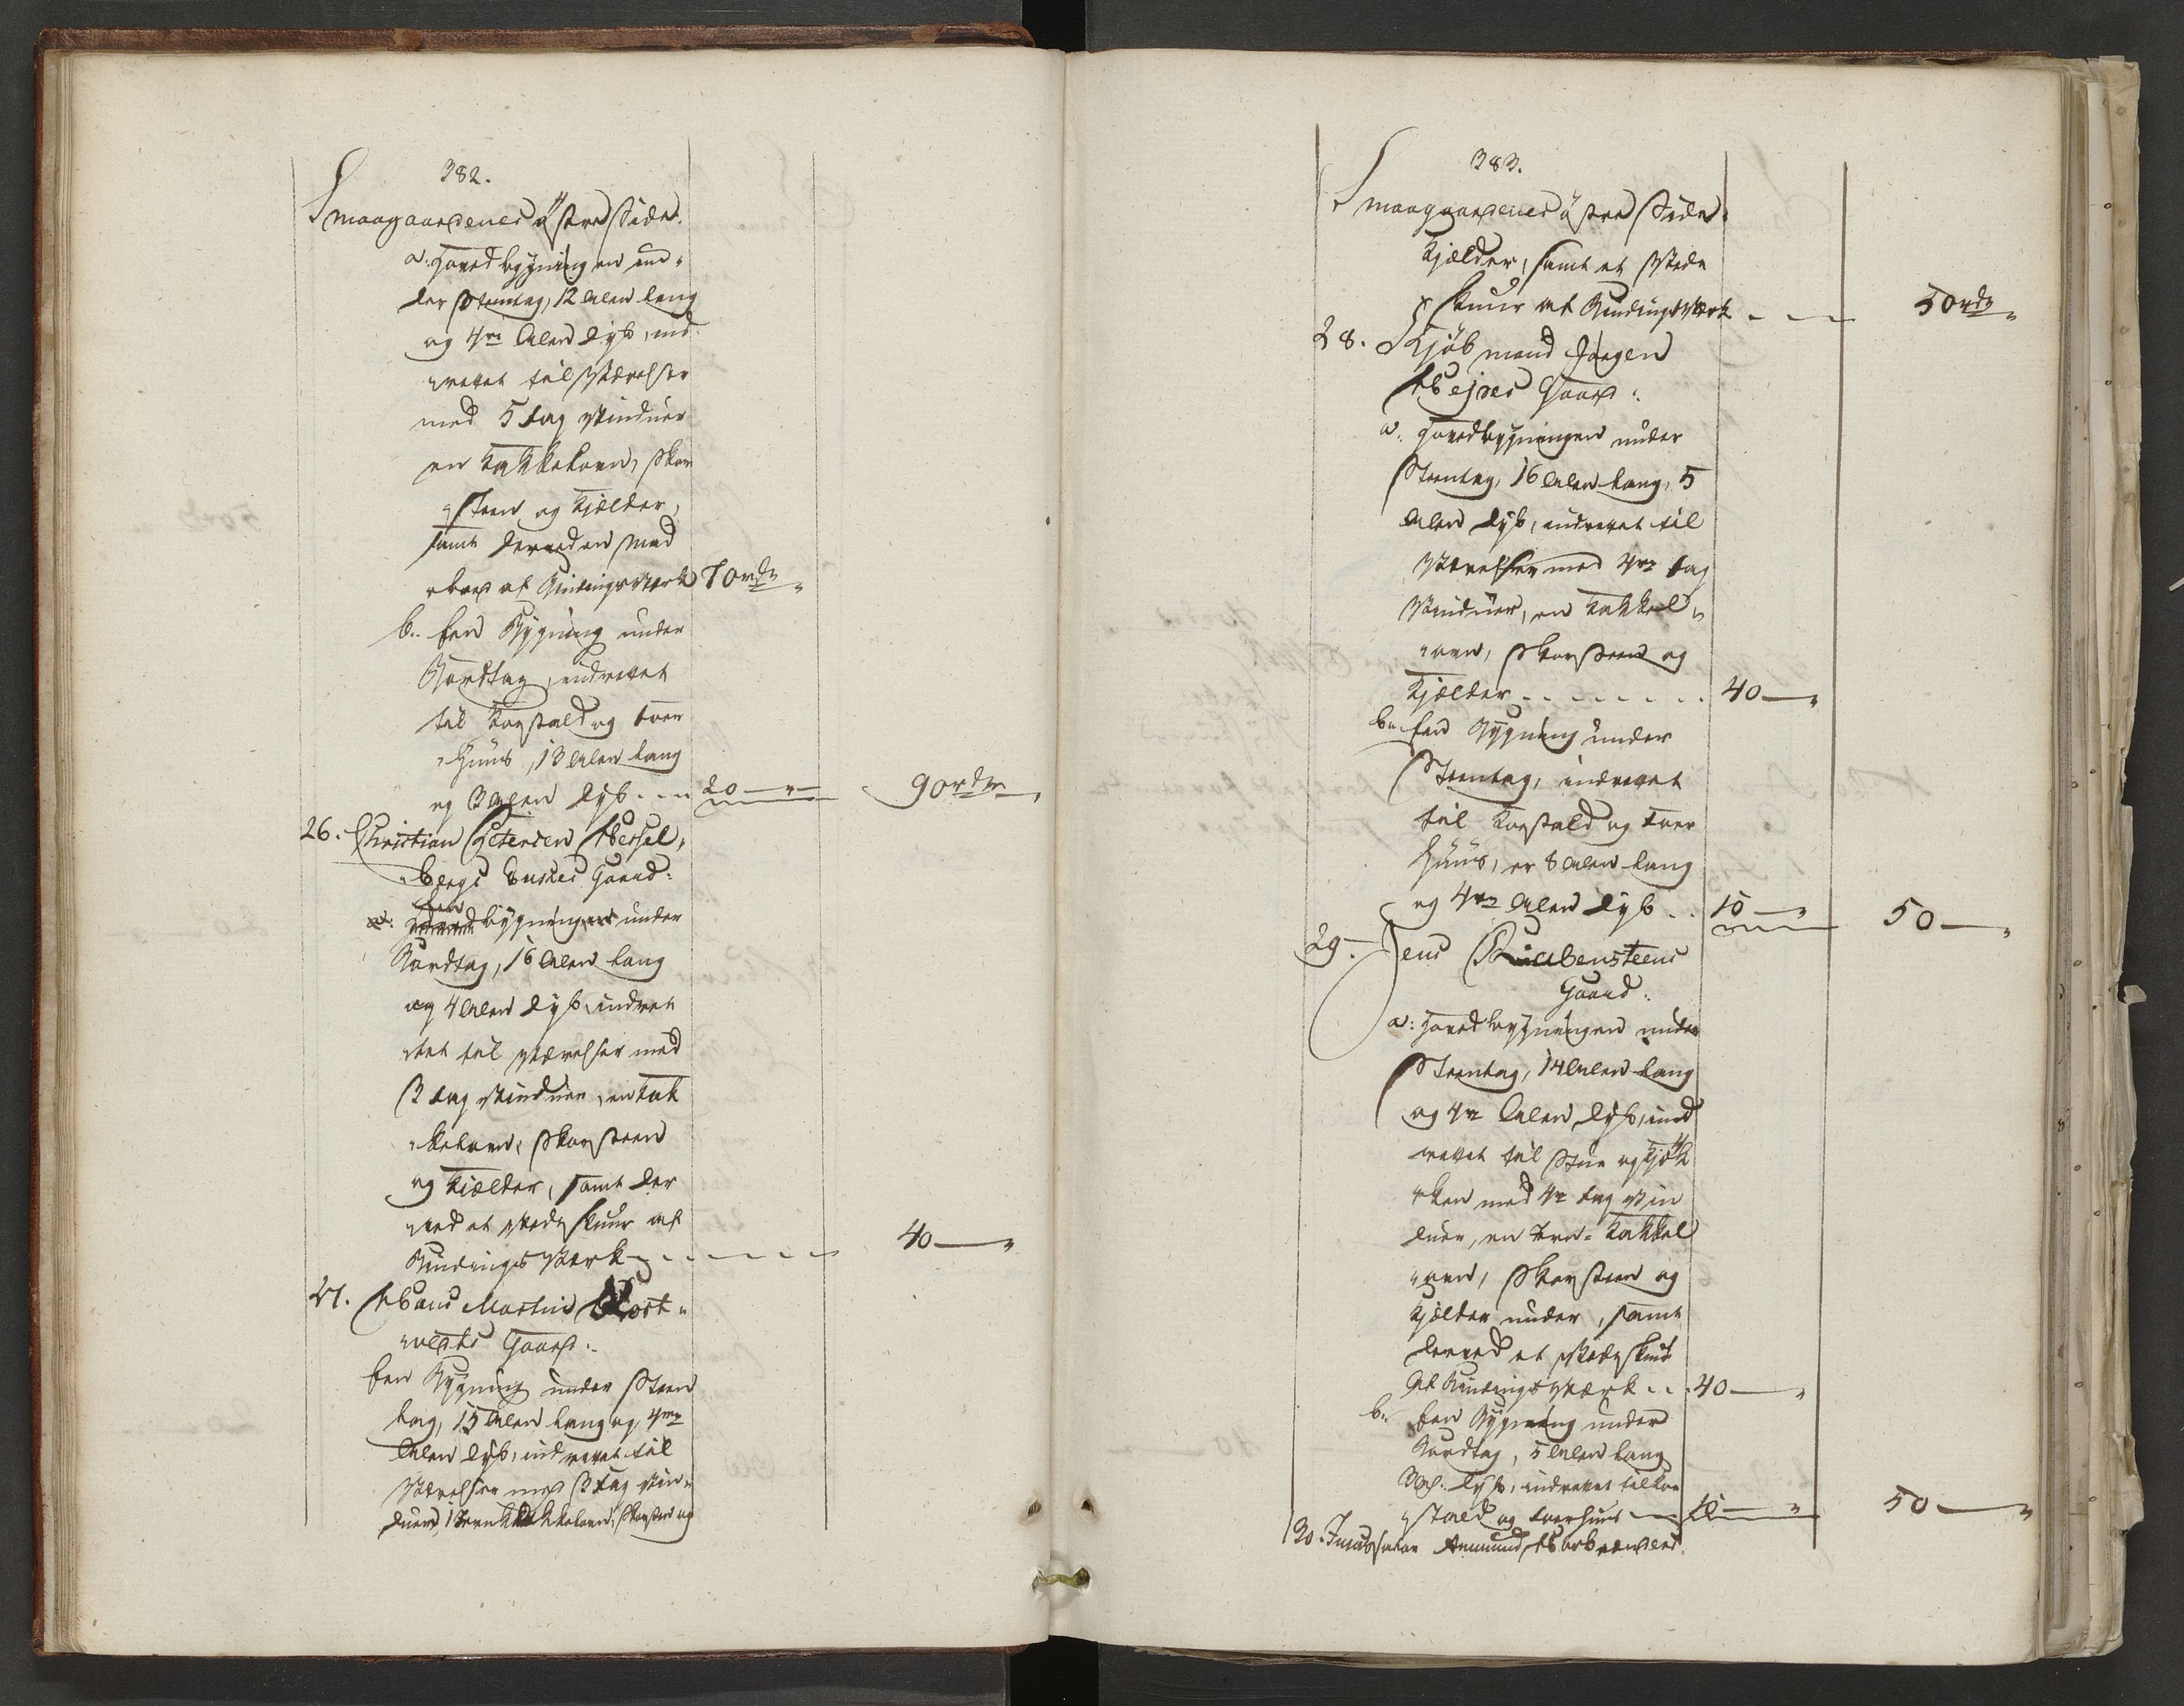 382.
Smaagaardenes østre Side.
a. Hovedbygningen un-
der Steentag, 12 Alen lang
og 4re Alen dyb, ind
rettet til Værelser
med 5 fag Vinduer
en Kakkelovn, Skor
steen og Kjelder,
samt derved en Mad
af Bindingsverk 70rdr
b. Een Bygning under
Nordtag, indrettet
til Koestald og foer
Huus, 13 Alen lang
og 3 Alen dyb... 20 — 90rdr
26. Christian Petersen Hessel-
bergs Enkes Gaard.
Een bygning under
Nordtag, 16 Alen lang
og 4 Alen dyb, indret
tet til Værelser med
3 fag Vinduer, en Kak
kelovn, Skorsteen
og Kjelder, samt der
ved et Vedskuur af
Bindingsverk - - - - - 40 —
27. Hans Martin
Gaard.
Een Bygning under Steen
tag, 15 Alen lang og 4re
Alen dyb, indrettet til
Værelser med 3 fag Vin-
duer, 1 Jern Kakkelovn, Skorsteen og
383.
Smaagaardenes østre Side.
Kjelder, samt et Vede
skuur af Bindingsverk - - 50rdr
28. Kjøbmand Jørgen
Hejres Gaard.
a. Hovedbygningen under
Steentag, 16 Alen lang, 5
Alen dyb, indrettet til
Værelser med 4re fag
Vinduer, en Kakkel
ovn, Skorsteen og
Kjelder - - - - - 40 —
b. Een Bygning under
Steentag, indrettet
til Koestald og foer
Huus, er 8 Alen lang
og 4re Alen dyb.. 10 — 50 —
29. Jens Raabensteens
Gaard.
a. Hovedbygningen under
Steentag, 14 Alen lang
og 4re Alen dyb, ind
rettet til Stue og Kjøk
ken med 4re fag Vin
duer, en Jern-Kakkel
ovn, Skorsteen og
Kjelder under, samt
derved et Vedskuur
af Bindingsverk... 40 —
b. Een Bygning under
Nordtag, 5 Alen lang
3 Al. dyb, indrettet til Koe
stald og foerhuus — 10 — 50 —
30. Amund